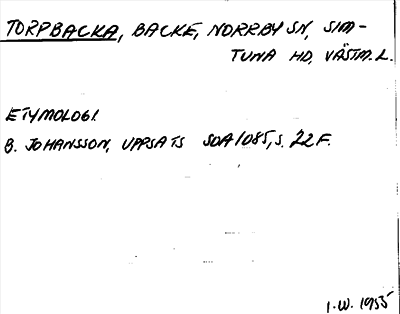 TORPBACKA, BACKE, NORRBY SN, SIM-
TUNA HD, VÄSTM. L.
ETYMOLOGI.
B. JOHANSSON, UPPSATS SOA 1085, S. 22 F.
I.W. 1955